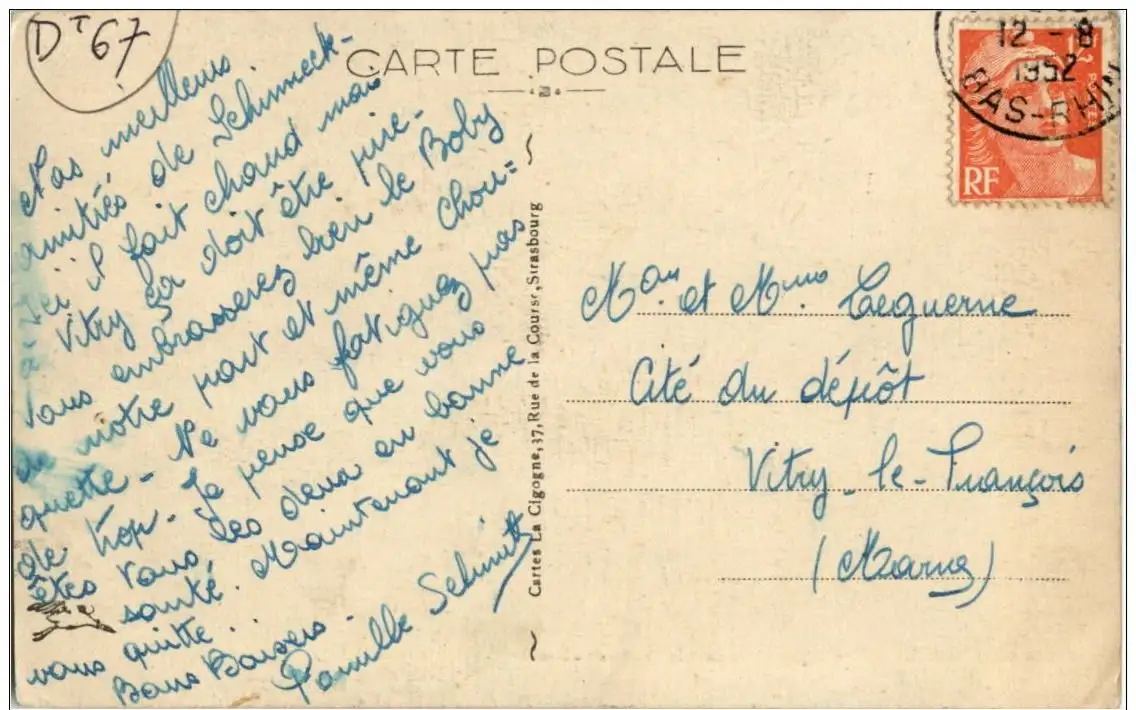 Dt 67
CARTE POSTALE
12 - 8
1952
BAS-RHIN
RF
Nos meilleurs
amitiés de Schirmeck-
Ici il fait chaud mais
Vitry ça doit être pire-
Vous embrasserez bien le Boby
de notre part et même Chou=
quette - Ne vous fatiguez pas
de trop - Je pense que vous
êtes tous les deux en bonne
santé. Maintenant je
vous quitte..
Bons Baisers.
Famille Schmitt
Cartes La Cigogne, 37, Rue de la Course, Strasbourg
et Mme Ceguerne
Cité du dépôt
Vitry-le-François
(Marne)